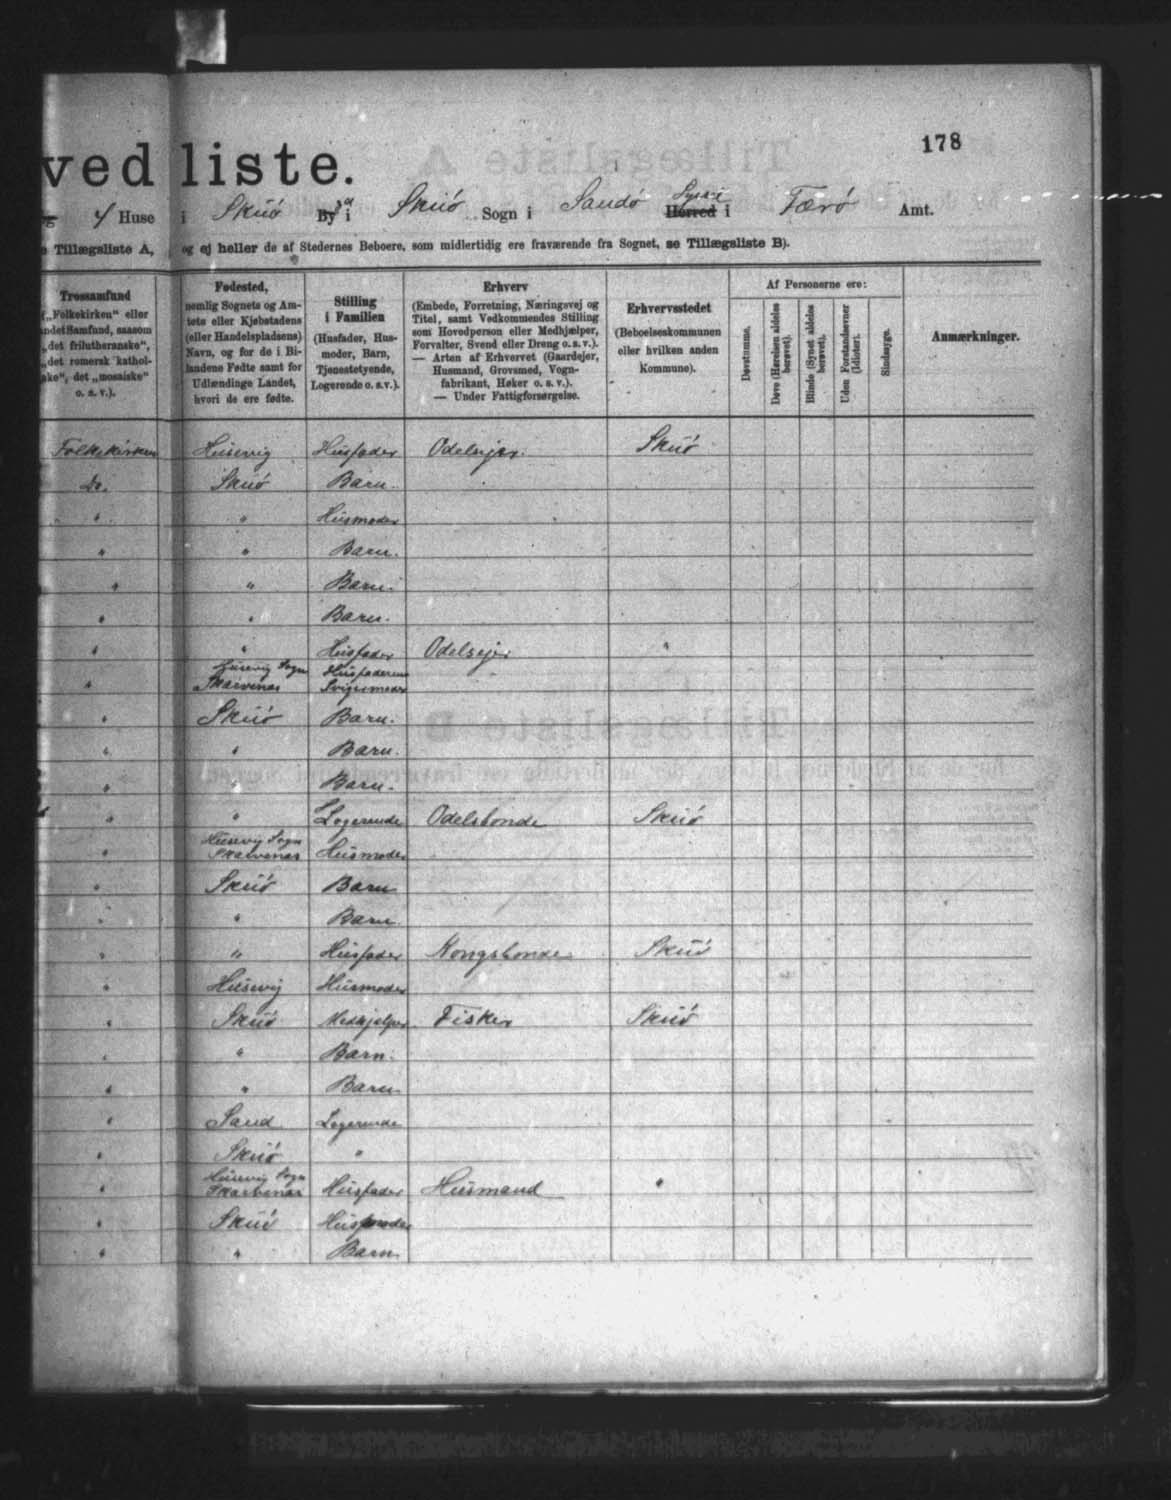 178
vedliste.
4 Huse i Skuö By i Skuö Sogn i Sandö Syssel Herred i Færö Amt.
Tillægsliste A, og ej heller de af Stedernes Beboere, som midlertidig ere fraværende fra Sognet, se Tillægsliste B).
Trossamfund
(„Folkekirken“ eller
andet Samfund, saasom
„det frilutheranske“,
„det romersk kathol-
ske“, det „mosaiske“
o. s. v.).
Fødested,
nemlig Sognets og Am-
tets eller Kjøbstadens
(eller Handelspladsens)
Navn, og for de i Bi-
landene Fødte samt for
Udlændinge Landet,
hvori de ere fødte.
Stilling
i Familien
(Husfader, Hus-
moder, Barn,
Tjenestetyende,
Logerende o. s. v.).
Erhverv
(Embede, Forretning, Næringsvej og
Titel, samt Vedkommendes Stilling
som Hovedperson eller Medhjælper,
Forvalter, Svend eller Dreng o. s. v.).
— Arten af Erhvervet (Gaardejer,
Husmand, Grovsmed, Vogn-
fabrikant, Høker o. s. v.).
— Under Fattigforsørgelse.
Erhvervsstedet
(Beboelseskommunen
eller hvilken anden
Kommune).
Af Personerne ere:
Døvstumme.
Døve (Hørelsen aldeles
berøvet).
Blinde (Synet aldeles
berøvet).
Uden Forstandsevner
(Idioter).
Sindssyge.
Anmærkninger.
Folkekirken Husevig Husfader Odelsejer. Skuö
Do. Skuö Barn.
" " Husmoder
" " Barn.
" " Barn.
" " Barn.
" " Husfader Odelsejer "
Husevig Sogn Husfaderens
" Skarvenæs Svigermoder
" Skuö Barn.
" " Barn.
" " Barn.
" " Logerende Odelsbonde Skuö
Husevig Sogn
" Skarvenæs Husmoder
" Skuö Barn
" " Barn
" " Husfader Kongsbonde Skuö
" Husevig Husmoder
" Skuö Medhjelper Fisker Skuö
" " Barn.
" " Barn
" Sand Logerende
" Skuö "
Husevig Sogn
" Skarvenæs Husfader Husmand "
" Skuö Husmoder
" " Barn